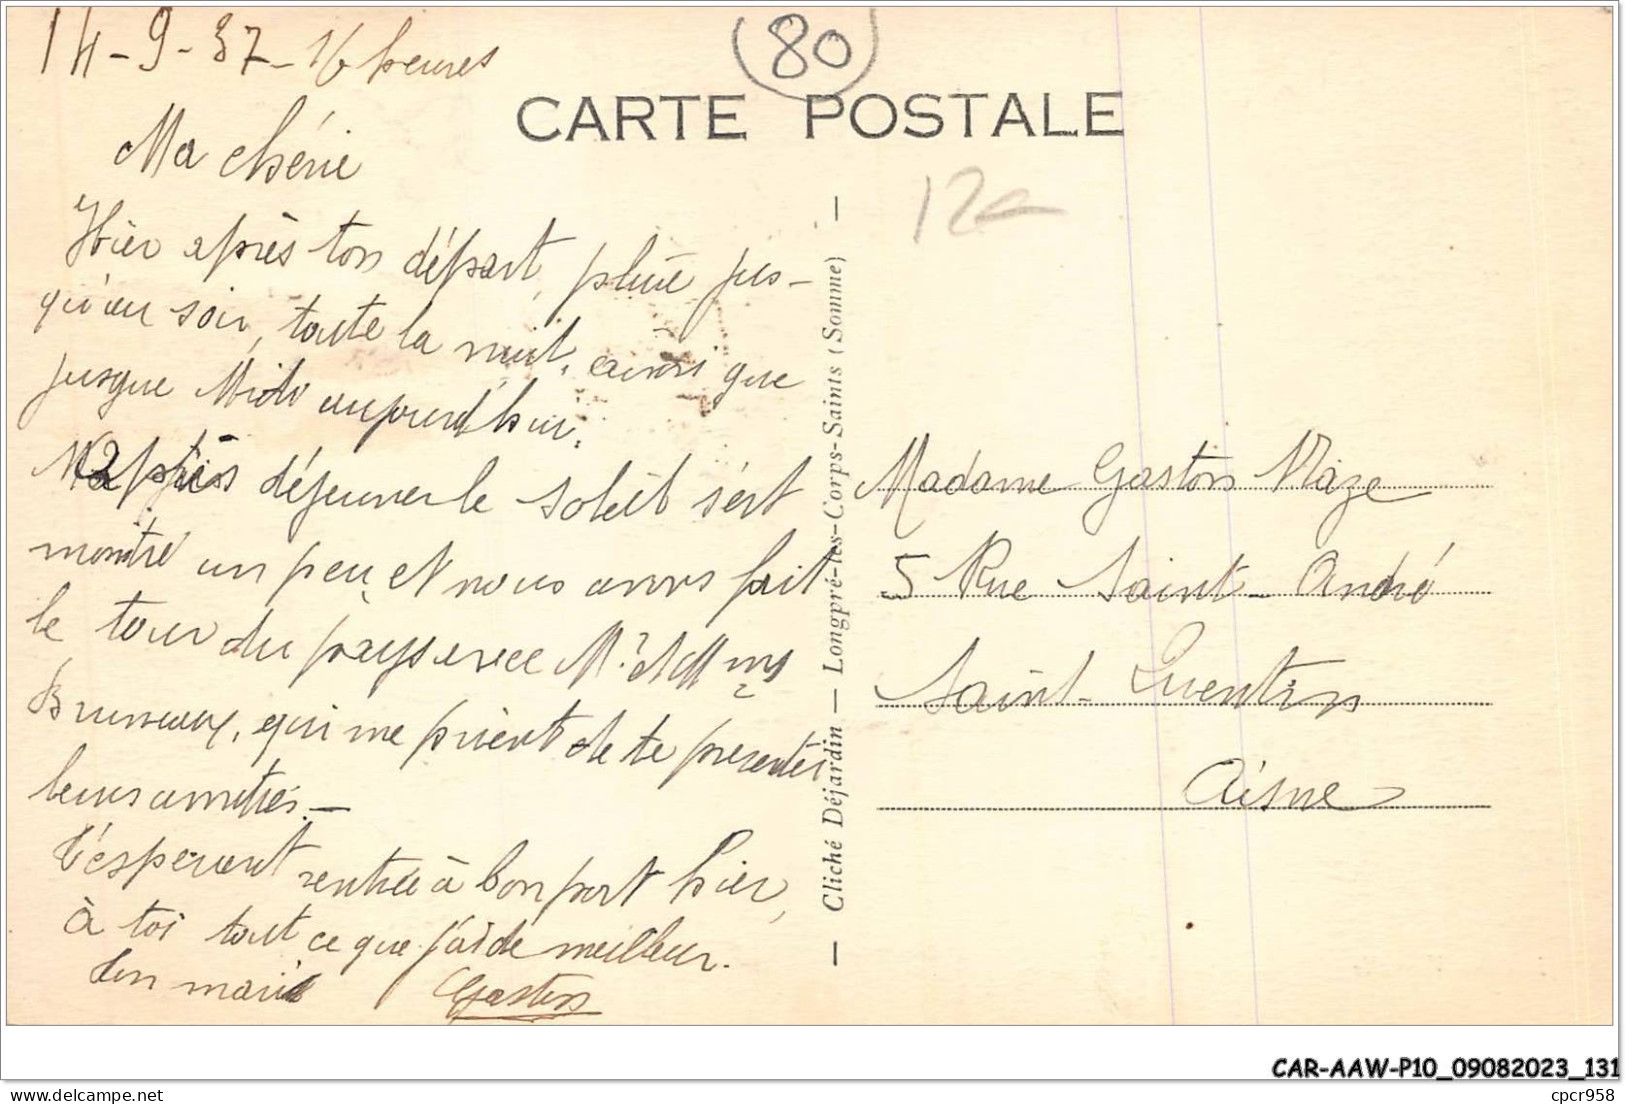 14-9-37-16 heures
80
CARTE POSTALE
12€
Ma chérie
Hier après ton départ, pluie jus-
qu'au soir, toute la nuit, ainsi que
jusque Midi aujourd'hui.
après déjeuner le soleil s'est
montré un peu, et nous avons fait
le tour du pays avec
qui me prient de te présenter
leurs amitiés. —
T'espérant rentrée à bon port hier,
à toi tout ce que j'ai de meilleur.
Ton mari Gaston
— Cliché Déjardin — Longpré-les-Corps-Saints (Somme) —
Madame Gaston Maze
5 Rue Saint-André
Saint-Quentin
Aisne
CAR-AAW-P10_09082023_131
cpcr958